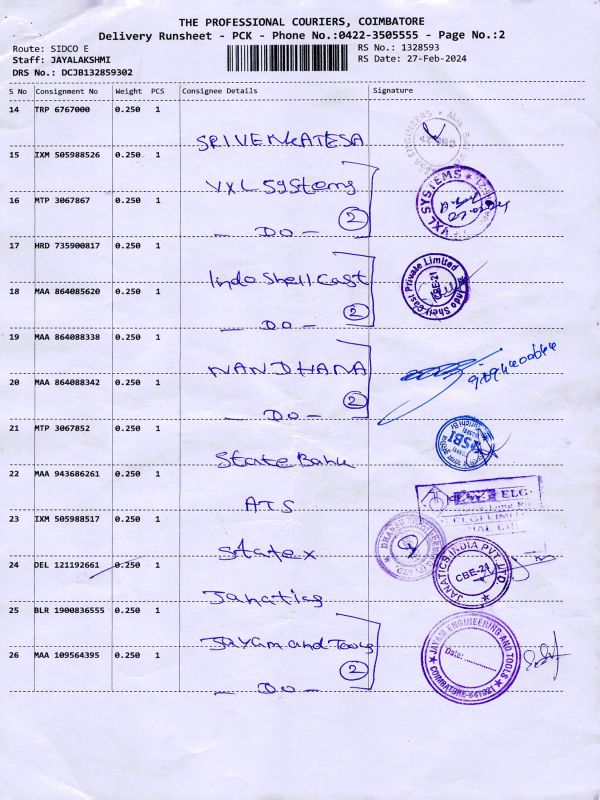 THE PROFESSIONAL COURIERS, COIMBATORE
Delivery Runsheet - PCK - Phone No.:0422-3505555 - Page No.:2
Route: SIDCO E
RS No.: 1328593
Staff: JAYALAKSHMI
RS Date: 27-Feb-2024
DRS No.: DCJB132859302
S No Consignment No Weight PCS Consignee Details Signature
14 TRP 6767000 0.250 1
SRIVENKATESA
15 IXM 505988526 0.250 1
VXL Systems
VXL SYSTEMS
16 MTP 3067867 0.250 1
2
DO
17 HRD 735900817 0.250 1
Indo Shell Cast
Indo Shell-Cast Private Limited
CBE-21
18 MAA 864085620 0.250 1
2
DO
19 MAA 864088338 0.250 1
NANDHANA
20 MAA 864088342 0.250 1
2
DO
21 MTP 3067852 0.250 1
State Bank
SBI
22 MAA 943686261 0.250 1
ATS
ELG
23 IXM 505988517 0.250 1
Statex
24 DEL 121192661 0.250 1
Janatics
JANATICS INDIA PVT. LTD.
CBE-21
25 BLR 1900836555 0.250 1
Jayam and Tools
JAYAM ENGINEERING AND TOOLS
Date:
COIMBATORE-641021
26 MAA 109564395 0.250 1
2
DO